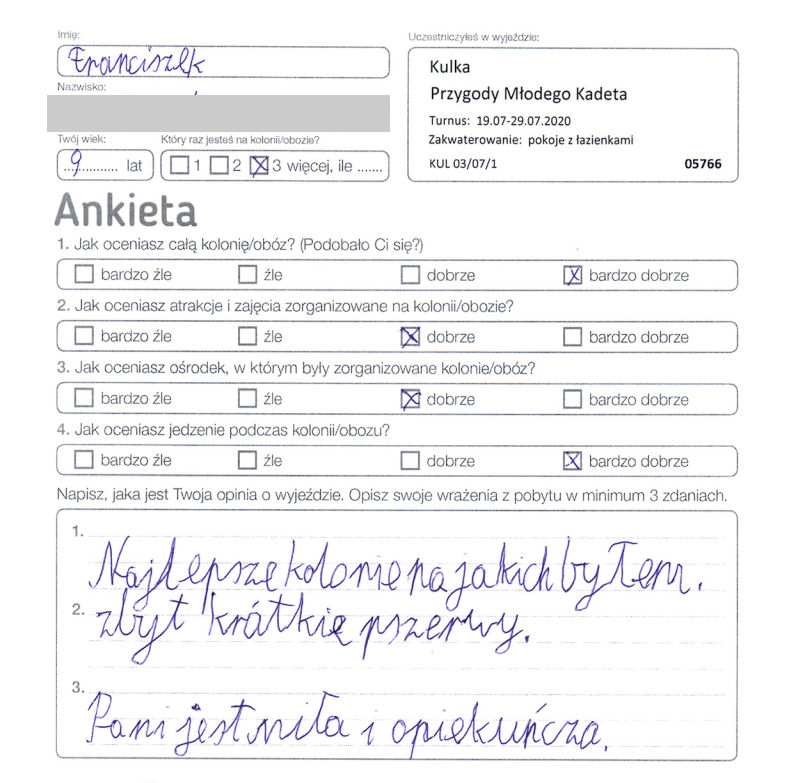 Imię:
Franciszek
Uczestniczyłeś w wyjeździe:
Kulka
Przygody Młodego Kadeta
Turnus: 19.07-29.07.2020
Zakwaterowanie: pokoje z łazienkami
KUL 03/07/1 05766
Nazwisko:
Twój wiek: Który raz jesteś na kolonii/obozie?
9 lat 1 2 3 więcej, ile .......
Ankieta
1. Jak oceniasz całą kolonię/obóz? (Podobało Ci się?)
bardzo źle źle dobrze bardzo dobrze
2. Jak oceniasz atrakcje i zajęcia zorganizowane na kolonii/obozie?
bardzo źle źle dobrze bardzo dobrze
3. Jak oceniasz ośrodek, w którym były zorganizowane kolonie/obóz?
bardzo źle źle dobrze bardzo dobrze
4. Jak oceniasz jedzenie podczas kolonii/obozu?
bardzo źle źle dobrze bardzo dobrze
Napisz, jaka jest Twoja opinia o wyjeździe. Opisz swoje wrażenia z pobytu w minimum 3 zdaniach.
1. Najlepsze kolonie na jakich byłem.
2. zbyt krótkie pszerwy.
3. Pani jest miła i opiekuńcza.